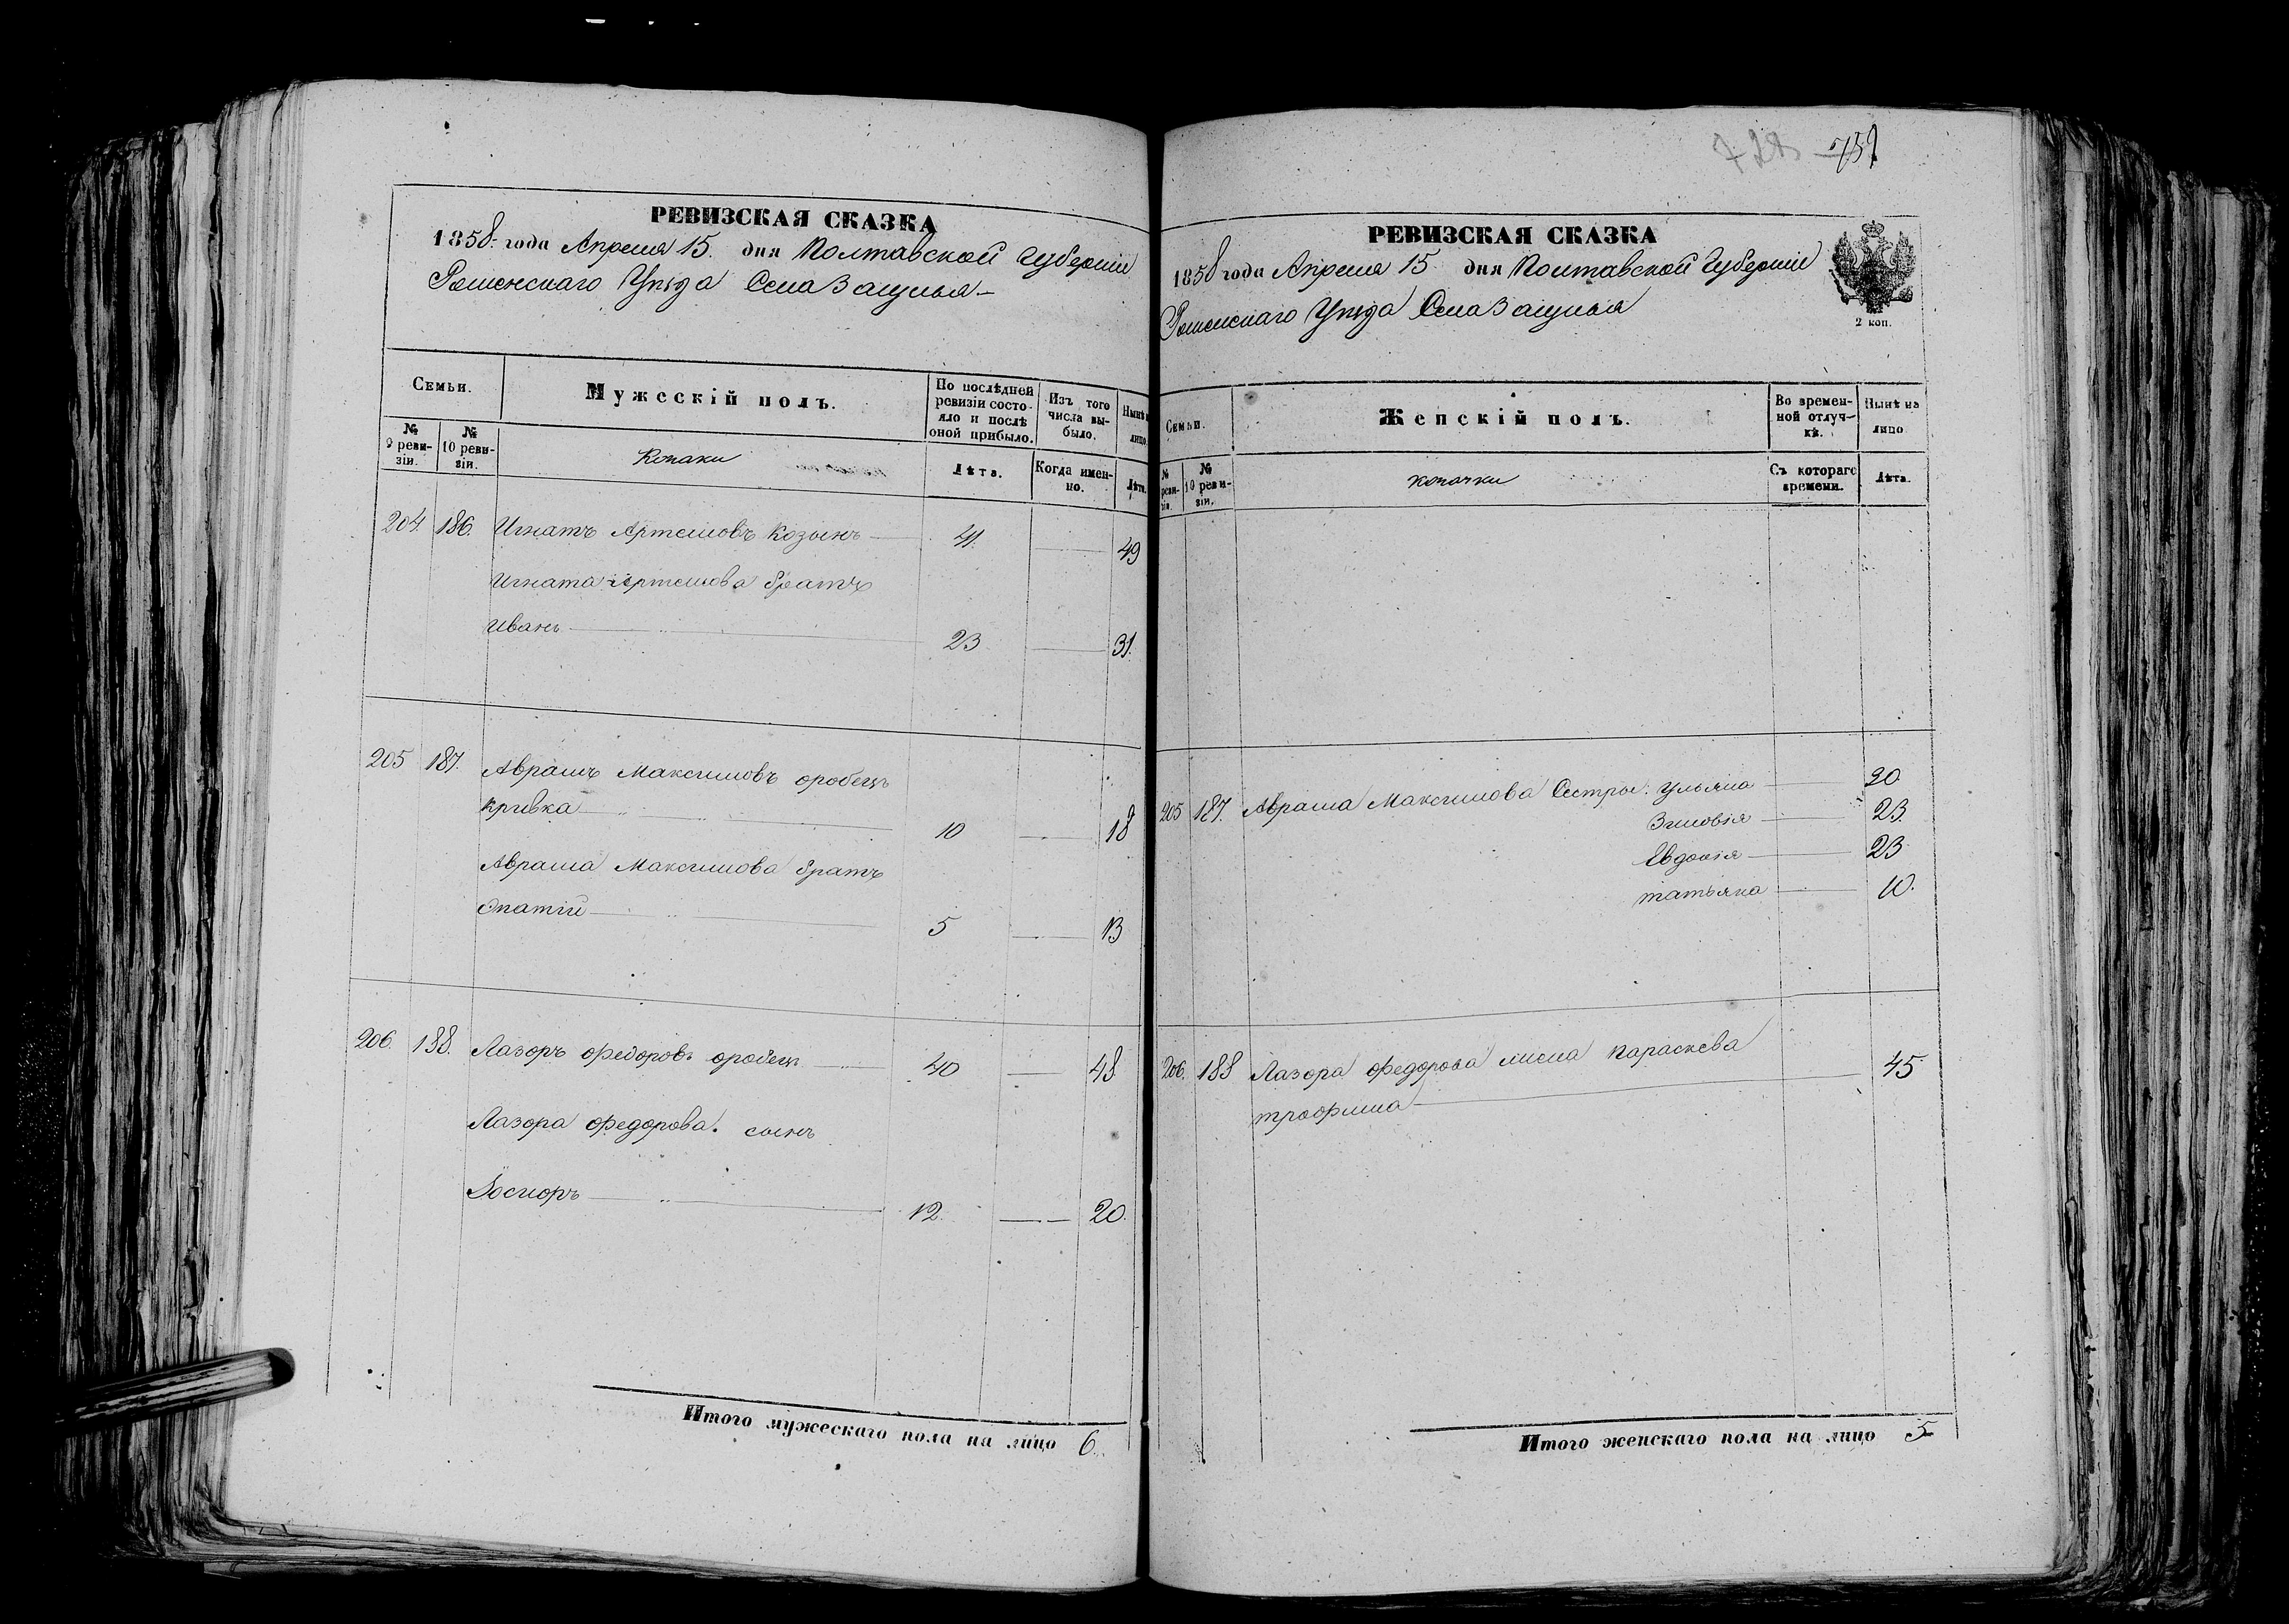 РЕВИЗСКАЯ СКАЗКА
1858 года Апреля 15. дня Полтавской Губернии
Роменскаго Уѣзда Села Защулья
Семьи.
Мужескій полъ.
По послѣдней ревизіи состояло и послѣ оной прибыло.
Изъ того числа выбыло.
Нынѣ на лицо.
№ 9 ревизіи.
№ 10 ревизіи.
Козаки
Лѣта.
Когда именно.
Лѣта.
204. 186. Игнатъ Артемовъ Козынъ 41. 49
Игната Артемова братъ
Иванъ 23 31.
205 187. Аврамъ Максимовъ
Кривка 10 18
Аврама Максимова братъ
Опатій 5 13
206. 188. Лазоръ Федоровъ 40 48
Лазора Федорова. сынъ
12. 20.
Итого мужескаго пола на лицо 6.
752
РЕВИЗСКАЯ СКАЗКА
1858 года Апреля 15 дня Полтавской Губерніи
Роменскаго Уѣзда Села Защулья
2 коп.
Семьи.
Женскій полъ.
Во временной отлучкѣ.
Нынѣ на лицо
№ ревизіи.
№ 10 ревизіи.
козачки
Съ котораго времени.
Лѣта.
205 187. Аврама Максимова Сестры: Ульяна 20
Зиновія 23.
Евдокія 23
татьяна 10.
206. 188 Лазора Федорова жена Параскева 45
трофима
Итого женскаго пола на лицо 5